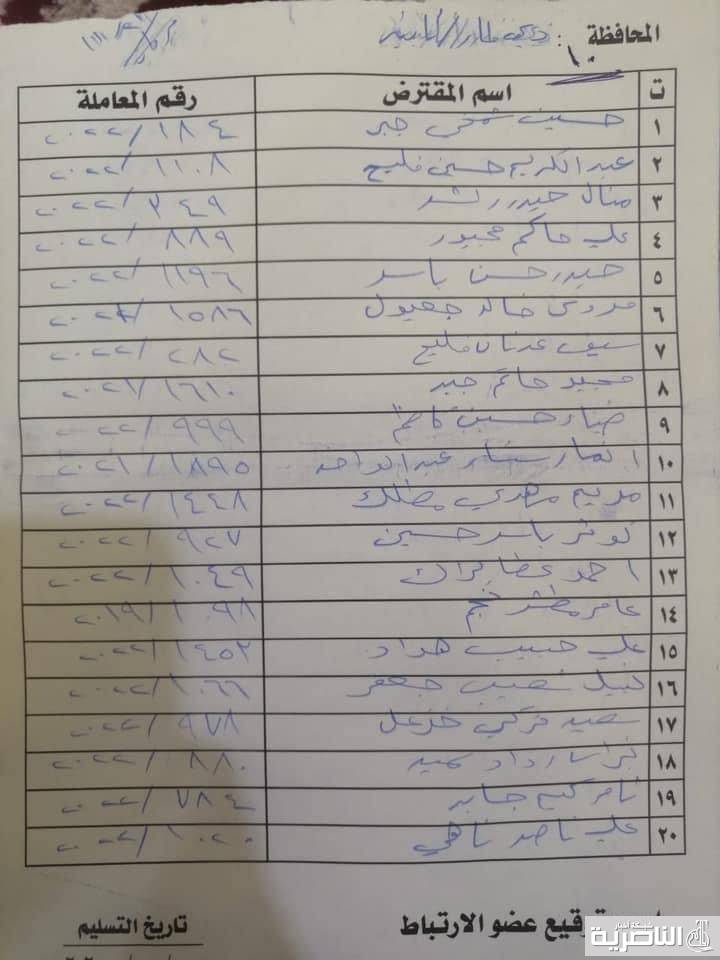 المحافظة : ذي قار / الناصرية
١٠
ت اسم المقترض رقم المعاملة
١ حسين شمخي جبر ١٨٤ / ٢٠٢٢
٢ عبد الكريم حسين فليح ١١٠٨ / ٢٠٢٢
٣ منال حيدر رشد ٣٤٩ / ٢٠٢٢
٤ علي حاكم مجبور ٨٨٩ / ٢٠٢٢
٥ حيدر حسن ياسر ١١٩٦ / ٢٠٢٢
٦ خالد جعيول ١٥٨٦ /
٧ سيف عدنان فليح ٢٨٢ / ٢٠٢٢
٨ مجيد حاتم جبر ١٦١٠ / ٢٠٢١
٩ ضياء حسين كاظم ٩٩٩ / ٢٠٢٢
١٠ انمار ستار عبد الواحد ١٨٩٥ / ٢٠٢١
١١ مريم مهدي مطلك ١٤٤٨ / ٢٠٢٢
١٢ كوثر ياسر حسين ٩٢٧ / ٢٠٢٢
١٣ احمد عطا ١٠٤٩ / ٢٠٢٢
١٤ عامر مطشر نجم ١٠٩٨ / ٢٠١٩
١٥ علي حبيب هداد ١٤٥٢ / ٢٠٢٢
١٦ نبيل نصيب جعفر ١٠٦٦ / ٢٠٢٢
١٧ تركي خزعل ٩٧٨ / ٢٠٢٢
١٨ ٨٨٠ / ٢٠٢٢
١٩ جابر ٧٨٤ / ٢٠٢٢
٢٠ علي ناصر ناهي ١٠٢٠ / ٢٠٢٢
توقيع عضو الارتباط تاريخ التسليم
شبكة أخبار
الناصرية